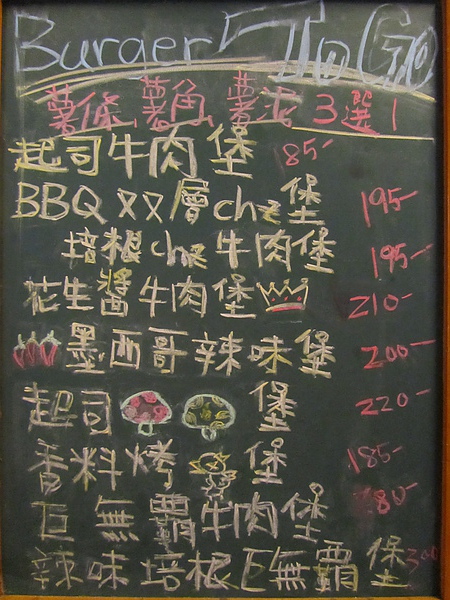 Burger To Go
薯條、薯角、薯泥 3選1
起司牛肉堡 185-
BBQ双層chz堡 195-
培根chz牛肉堡 195-
花生醬牛肉堡 210-
墨西哥辣味堡 200-
起司 堡 220-
香料烤 堡 185-
巨無霸牛肉堡 280-
辣味培根巨無霸堡 300